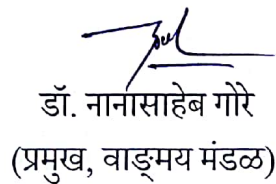 डॉ. नानासाहेब गोरे
(प्रमुख, वाङ्‌मय मंडळ)